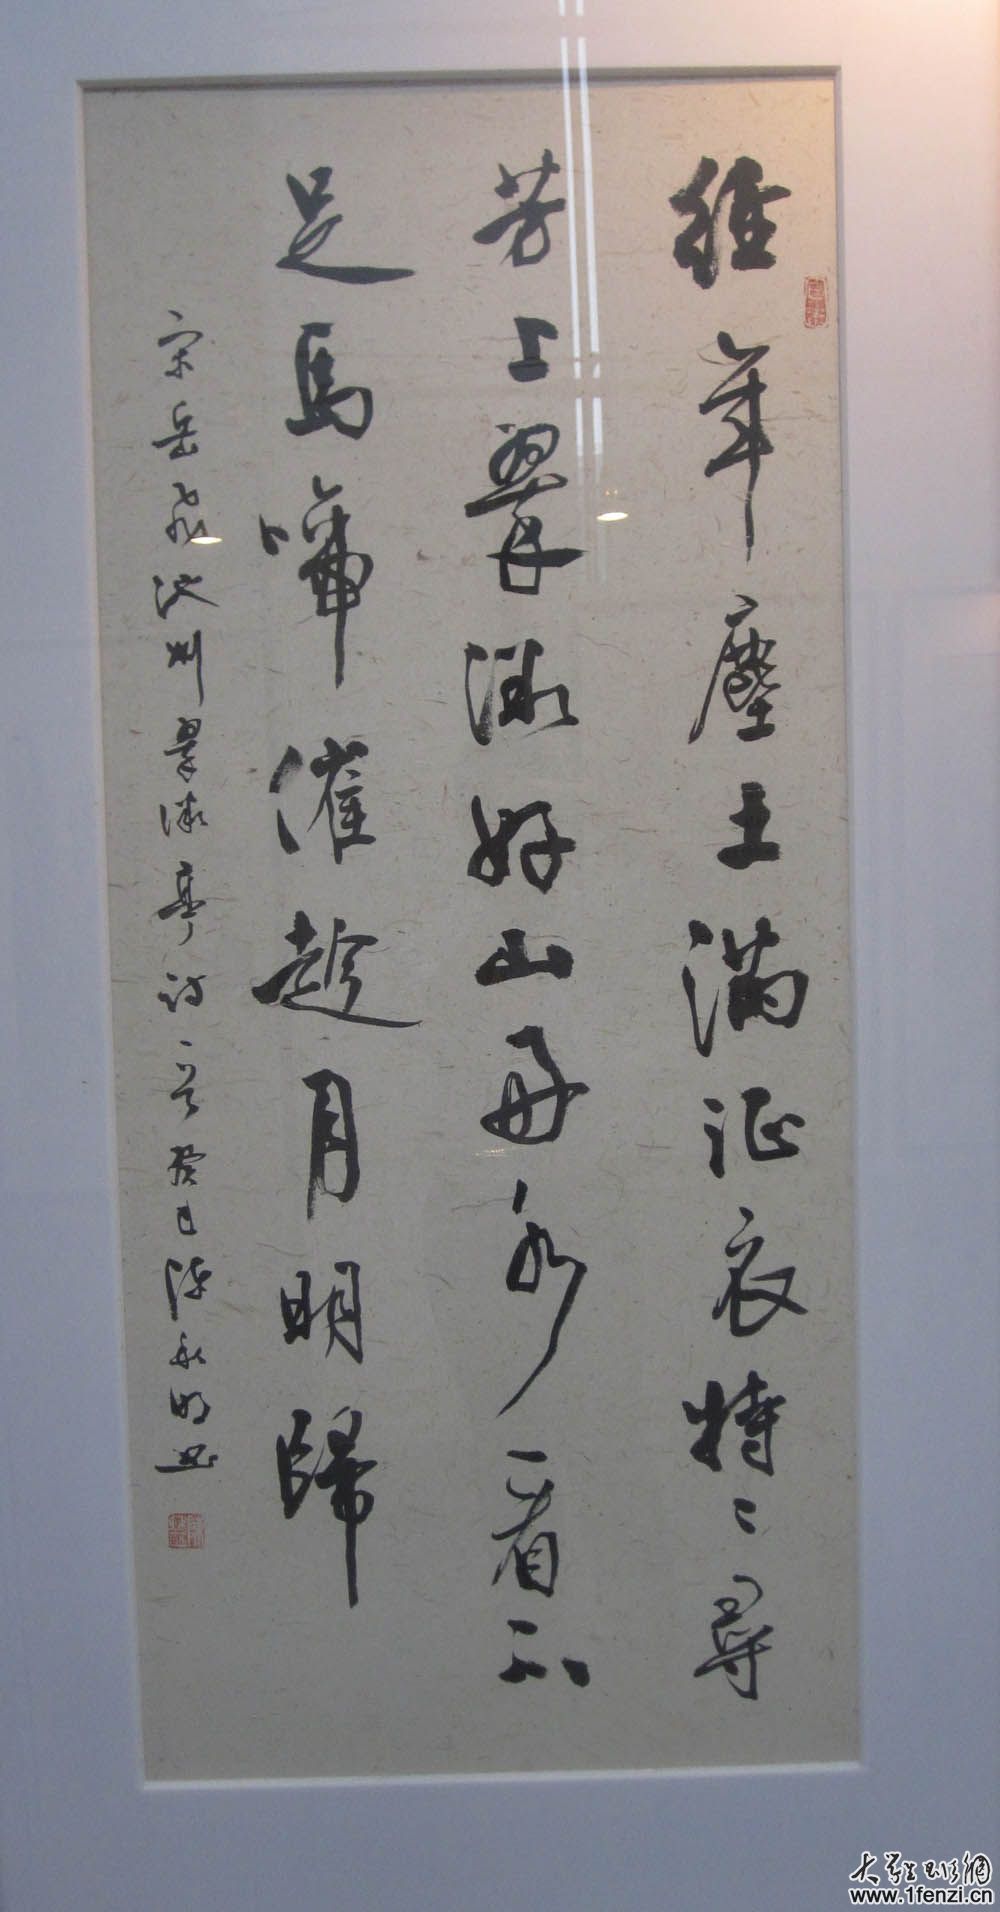 經年塵土滿征衣特〻尋
芳上翠微好山好水看不
足馬啼催趁月明歸
宋岳飛池州翠微亭詩一首癸巳陳永明書
大学生书法網
www.1fenzi.cn